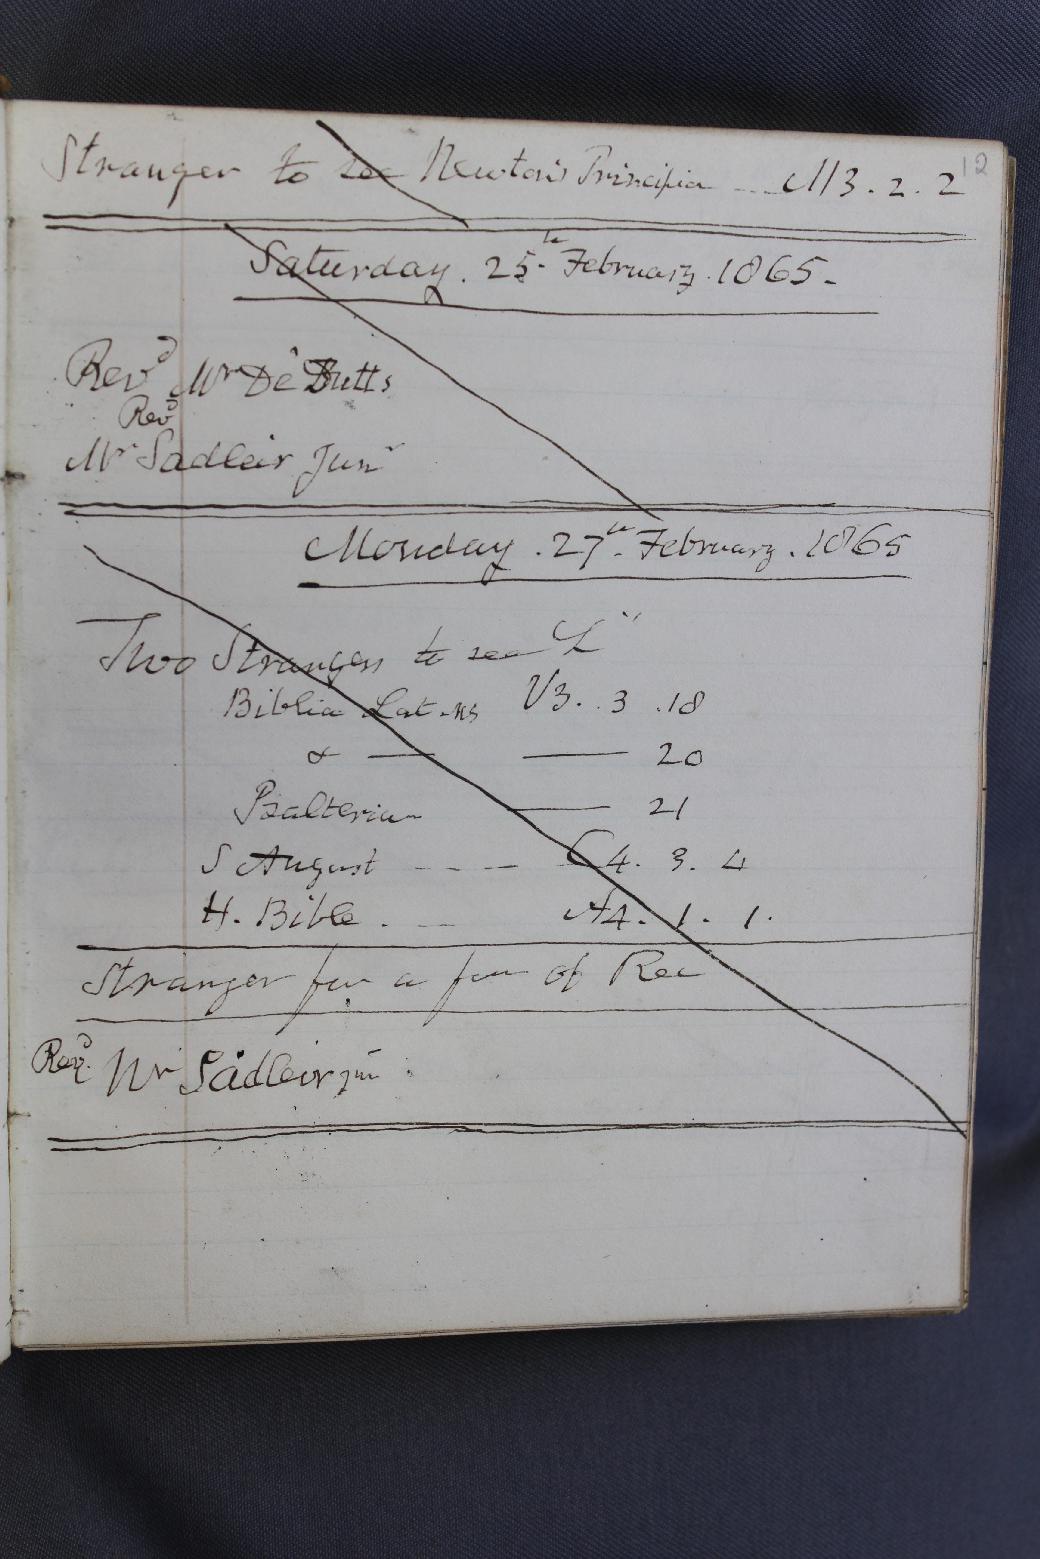 12
Stranger to see Newton's Principia M3. 2. 2
Saturday. 25th February. 1865.
Revd Mr De Butts
Revd
Mr Sadleir Junr
Monday. 27th February. 1865
Two Strangers to see
Biblia Lat. ms V3. 3. 18
20
Psalterium 21
S August C4. 3. 4
H. Bible. A4. 1. 1.
Stranger for a of
Revd. Mr Sadleir jun